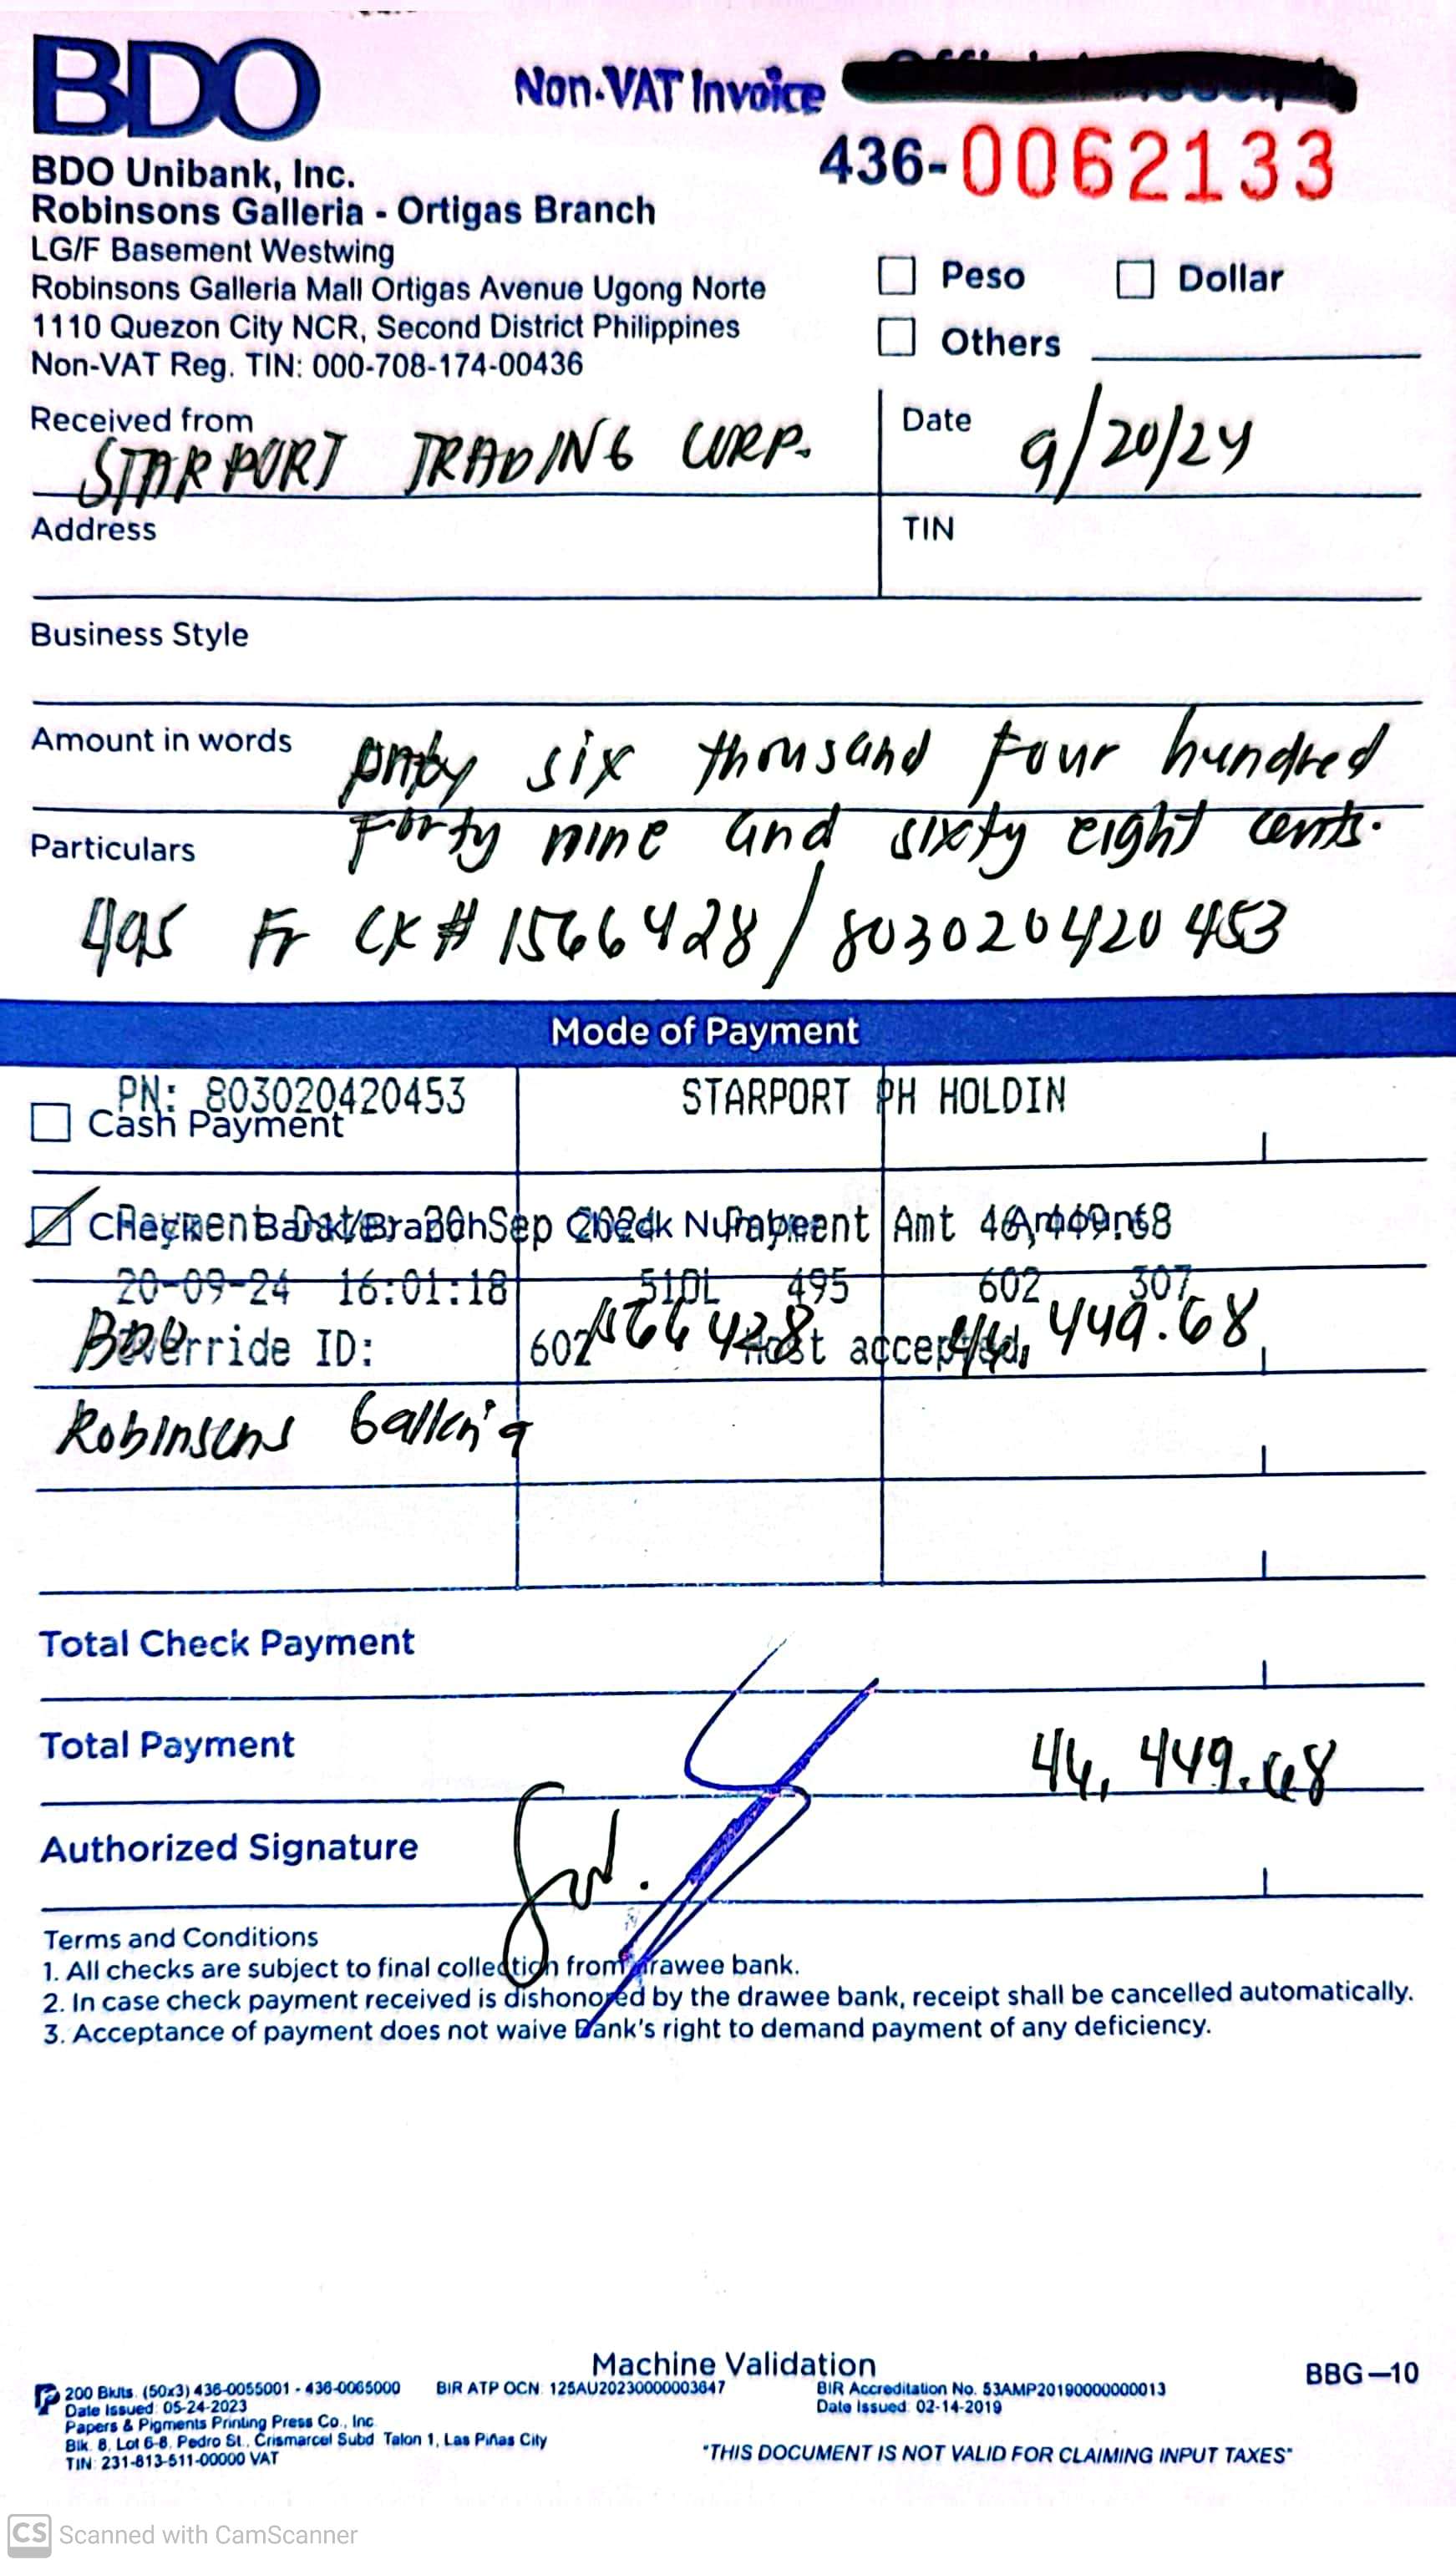 BDO
Non-VAT Invoice
436-0062133
BDO Unibank, Inc.
Robinsons Galleria - Ortigas Branch
LG/F Basement Westwing
Robinsons Galleria Mall Ortigas Avenue Ugong Norte
1110 Quezon City NCR, Second District Philippines
Non-VAT Reg. TIN: 000-708-174-00436
Peso Dollar
Others
Received from STARPORT TRADING CORP.
Date 9/20/24
Address
TIN
Business Style
Amount in words six thousand four hundred
forty nine and sixty eight cents.
Particulars
Fr CK# 1566428 / 803020420453
Mode of Payment
PN: 803020420453 STARPORT PH HOLDIN
Cash Payment
Check Bank/Branch Check Number Amount
Payment Date: 20 Sep 2024 Payment Amt 46,449.68
20-09-24 16:01:18 51DL 495 602 307
Override ID: 602 Host accepted
BDO 1566428 46,449.68
Robinsons Galleria
Total Check Payment
Total Payment 46,449.68
Authorized Signature
Terms and Conditions
1. All checks are subject to final collection from drawee bank.
2. In case check payment received is dishonored by the drawee bank, receipt shall be cancelled automatically.
3. Acceptance of payment does not waive Bank's right to demand payment of any deficiency.
Machine Validation
BBG-10
200 Bklts. (50x3) 436-0055001 - 436-0065000
Date Issued: 05-24-2023
Papers & Pigments Printing Press Co., Inc
Blk. 8, Lot 6-8, Pedro St., Crismarcel Subd Talon 1, Las Piñas City
TIN: 231-813-511-00000 VAT
BIR ATP OCN: 125AU20230000003647
BIR Accreditation No. 53AMP20190000000013
Date Issued: 02-14-2019
"THIS DOCUMENT IS NOT VALID FOR CLAIMING INPUT TAXES"
CS Scanned with CamScanner